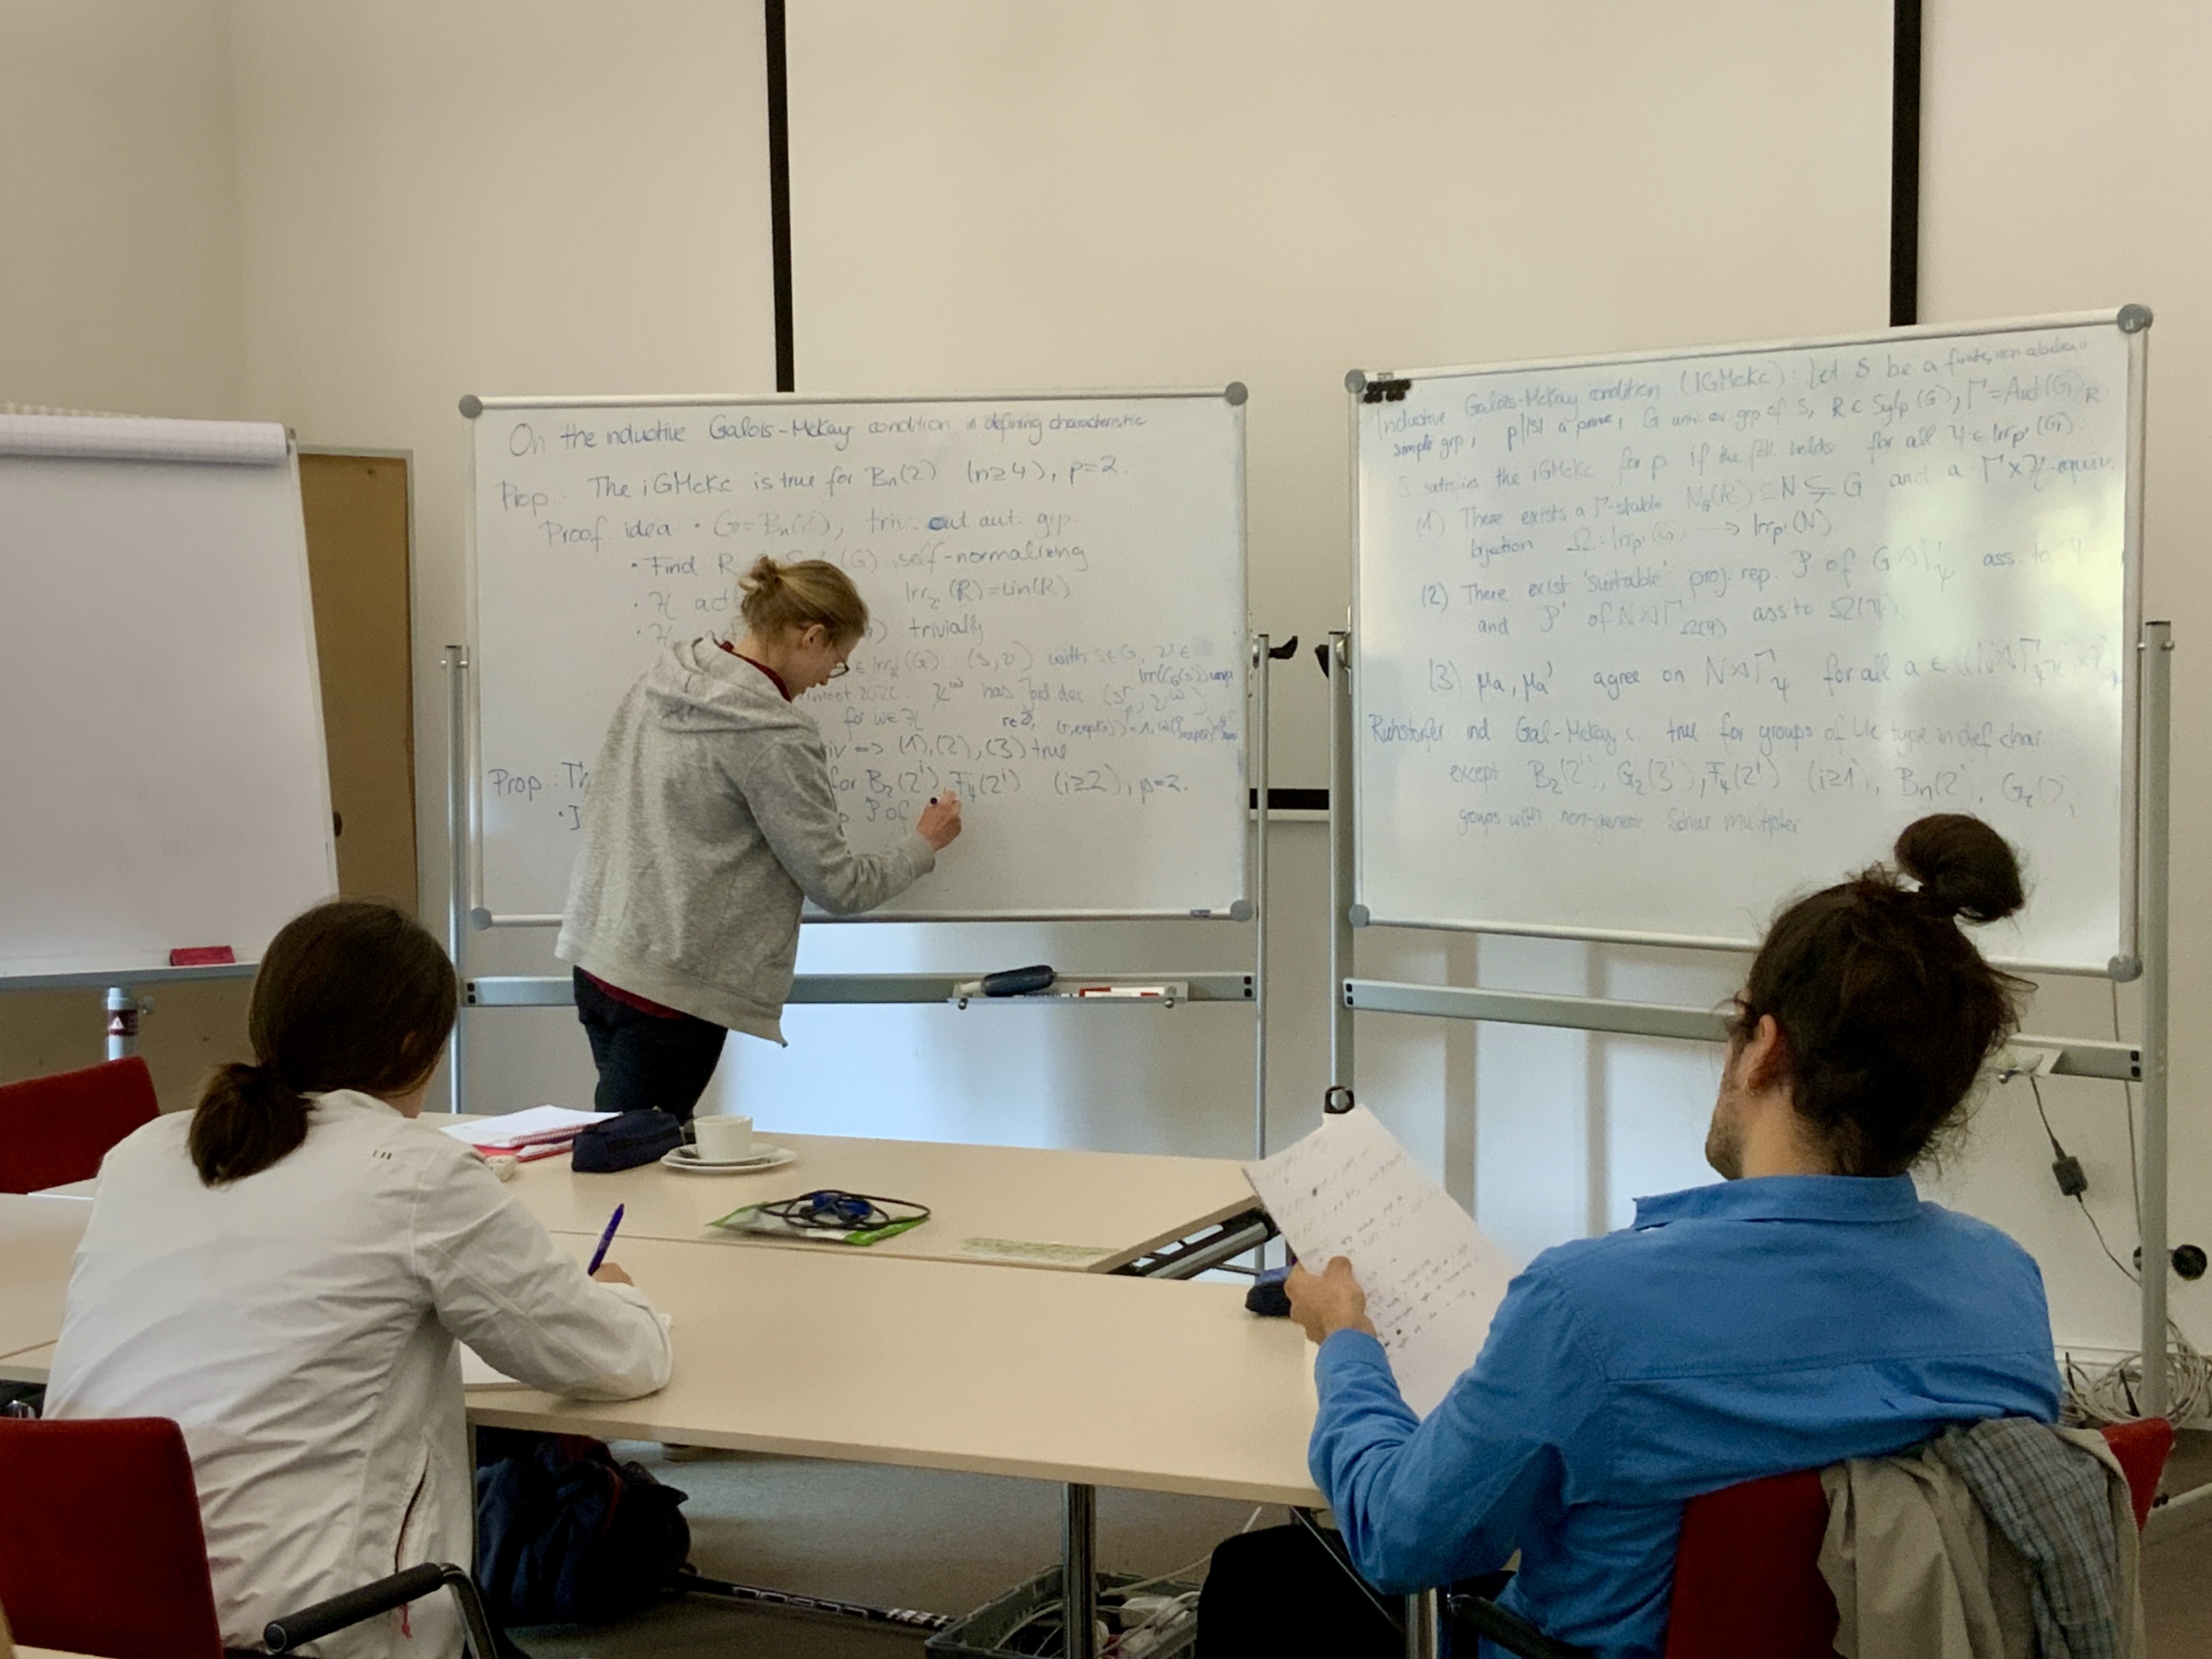 On the inductive Galois-McKay condition in defining characteristic
Prop.: The iGMcKc is true for Bn(2) (n≥4), p=2.
Proof idea: • G=Bn(2), triv. out. aut. grp.
• Find R (G) self-normalizing
• H act Irr2'(R)=Lin(R)
• H trivially
∈ Irr2'(G) : (s,ν) with s∈G, ν∈
Irr(CG(s)) unip
2020 χ^ω has Jord dec (s^r, ν^ω)
for ω∈H r∈ℤ,
⇒ (1),(2),(3) true
Prop.: Th for B2(2^i), F4(2^i) (i≥2), p=2.
P of
Inductive Galois-McKay condition (iGMcKc): Let S be a finite, non abelian
simple grp, p||S| a prime, G univ. cov. grp of S, R ∈ Sylp(G), Γ=Aut(G)R
S satisfies the iGMcKc for p if the foll. holds for all ψ∈Irrp'(G).
(1) There exists a Γ-stable NG(R)≤N⊊G and a Γ×H-equiv.
bijection Ω: Irrp'(G) → Irrp'(N)
(2) There exist 'suitable' proj. rep. P of G⋊Γψ ass to ψ
and P' of N⋊ΓΩ(ψ) ass to Ω(ψ).
(3) μa, μa' agree on N⋊Γψ for all a ∈
Ruhstorfer ind Gal-McKay c. true for groups of Lie type in def char.
except B2(2^i), G2(3^i), F4(2^i) (i≥1), Bn(2),
groups with non-generic Schur multiplier